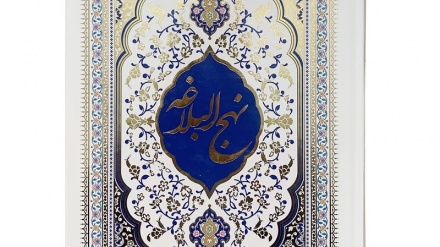 نهج البلاغه